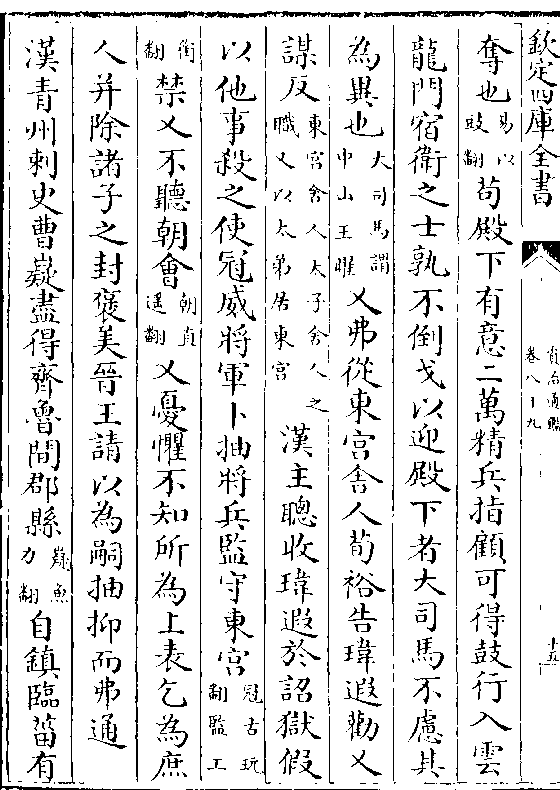 欽定四庫全書
資治通鑑
卷八十九
十五
奪也易以豉翻苟殿下有意二萬精兵指顧可得鼓行入雲
龍門宿衛之士孰不倒戈以迎殿下者大司馬不慮其
為異也大司馬謂中山王曜乂弗從東宮舍人荀裕告瑋遐勸乂
謀反東宮舍人太子舍人之職乂以太弟居東宮漢主聰收瑋遐於詔獄假
以他事殺之使冠威將軍卜抽將兵監守東宮冠古玩翻監工
銜翻禁乂不聽朝會朝直遥翻乂憂懼不知所為上表乞為庶
人并除諸子之封褒美晉王請以為嗣抽抑而弗通
漢青州刺史曹嶷盡得齊魯間郡縣嶷魚力翻自鎮臨菑有